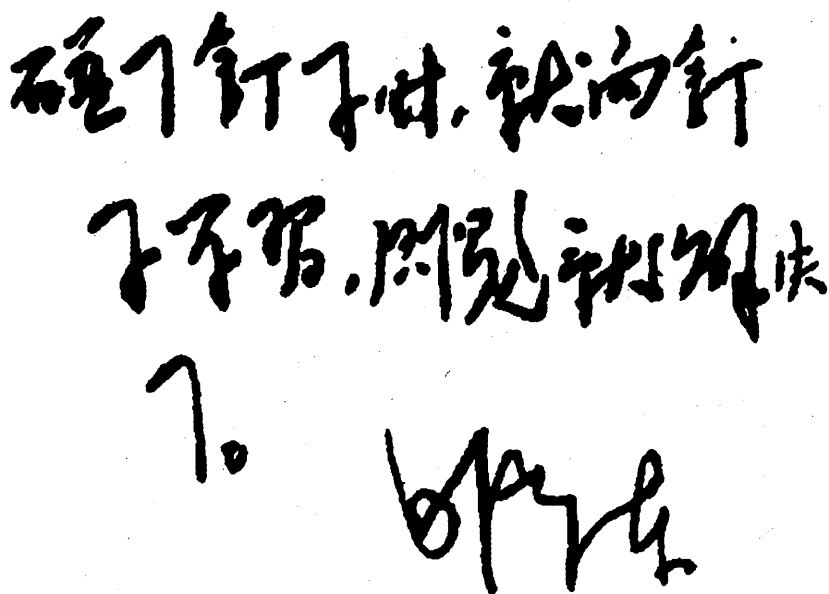 碰了钉子时，就向钉
子学习，问题就解决
了。